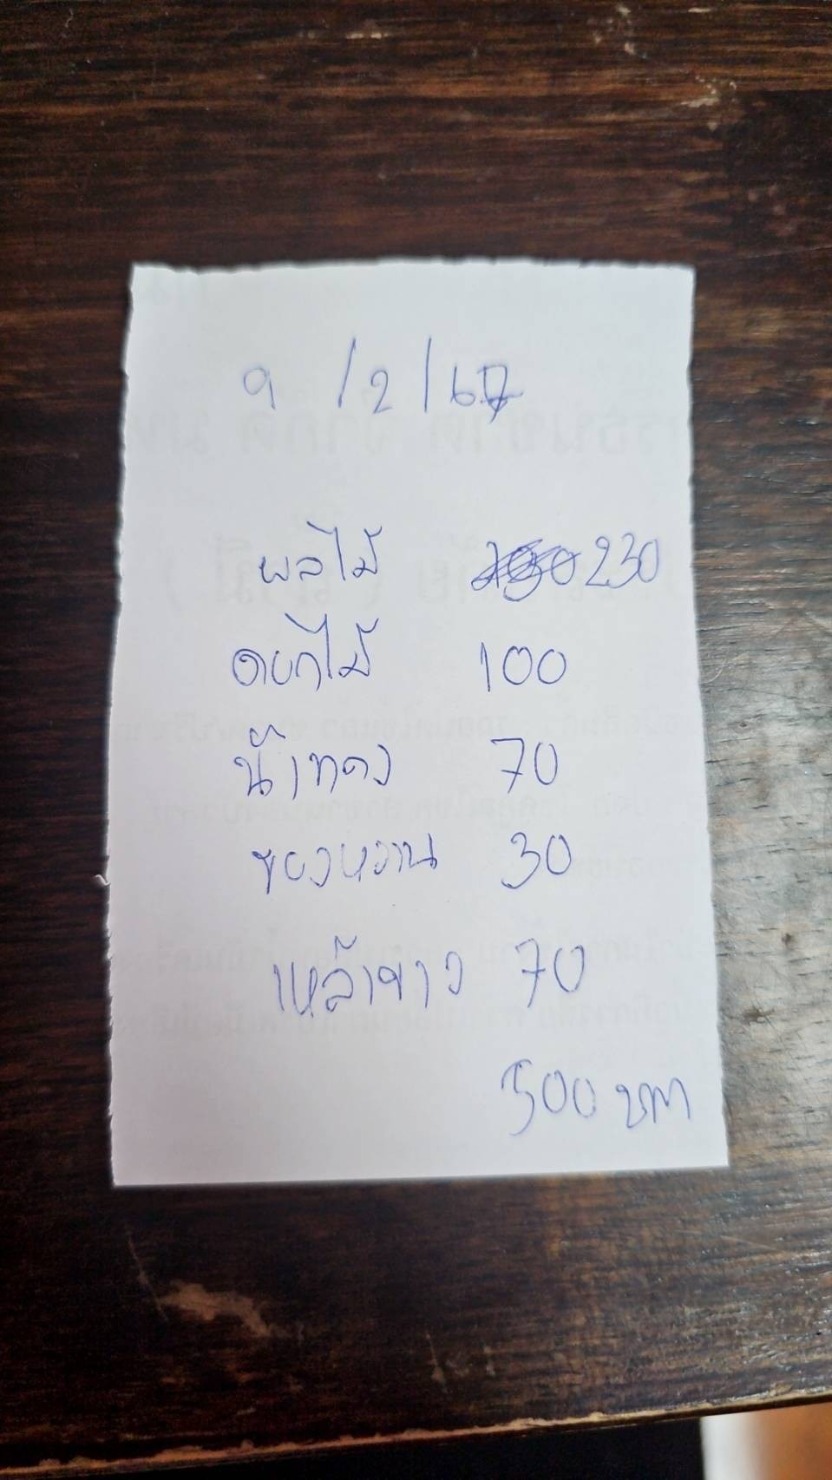 9 /2/67
ผลไม้ 230
ดอกไม้ 100
น้ำแดง 70
ของหวาน 30
เหล้าขาว 70
500 บาท